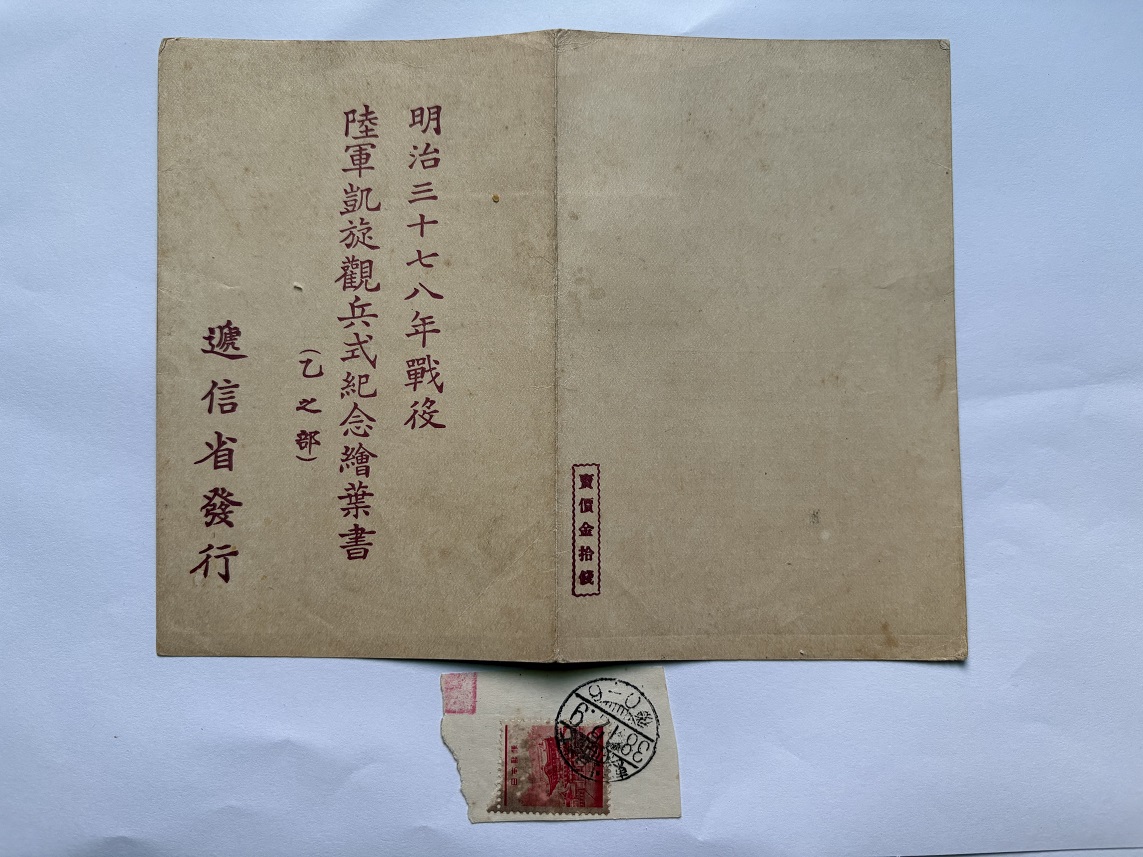 明治三十七八年戰役
陸軍凱旋觀兵式紀念繪葉書
(乙之部)
遞信省發行
賣價金拾錢
38.12.9
0-6